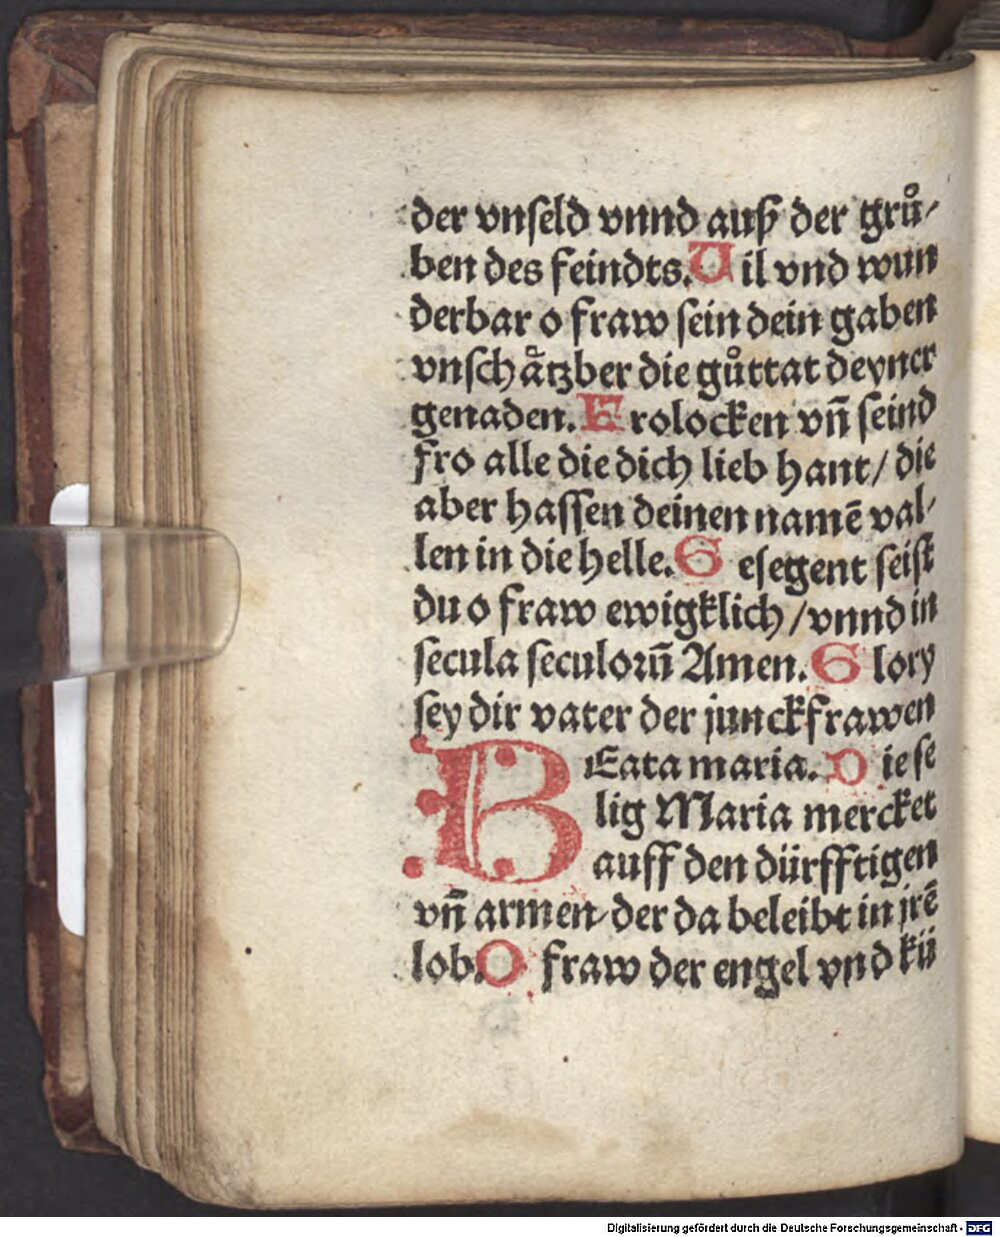 der vnſeld vnnd auß der grů-
ben des feindts. Uil vnd wun
derbar o fraw ſein dein gaben
vnſchåtzber die gůttat deyner
genaden. Frolocken vñ ſeind
fro alle die dich lieb hant/ die
aber haſſen deinen namē val-
len in die helle. Geſegent ſeiſt
du o fraw ewigklich/ vnnd in
ſecula ſeculorū Amen. Glory
ſey dir vater der junckfrawen
BEata maria. Die ſe
lig Maria mercket
auff den dürfftigen
vñ armen der da beleibt in jrē
lob. O fraw der engel vnd kü
Digitalisierung gefördert durch die Deutsche Forschungsgemeinschaft - DFG